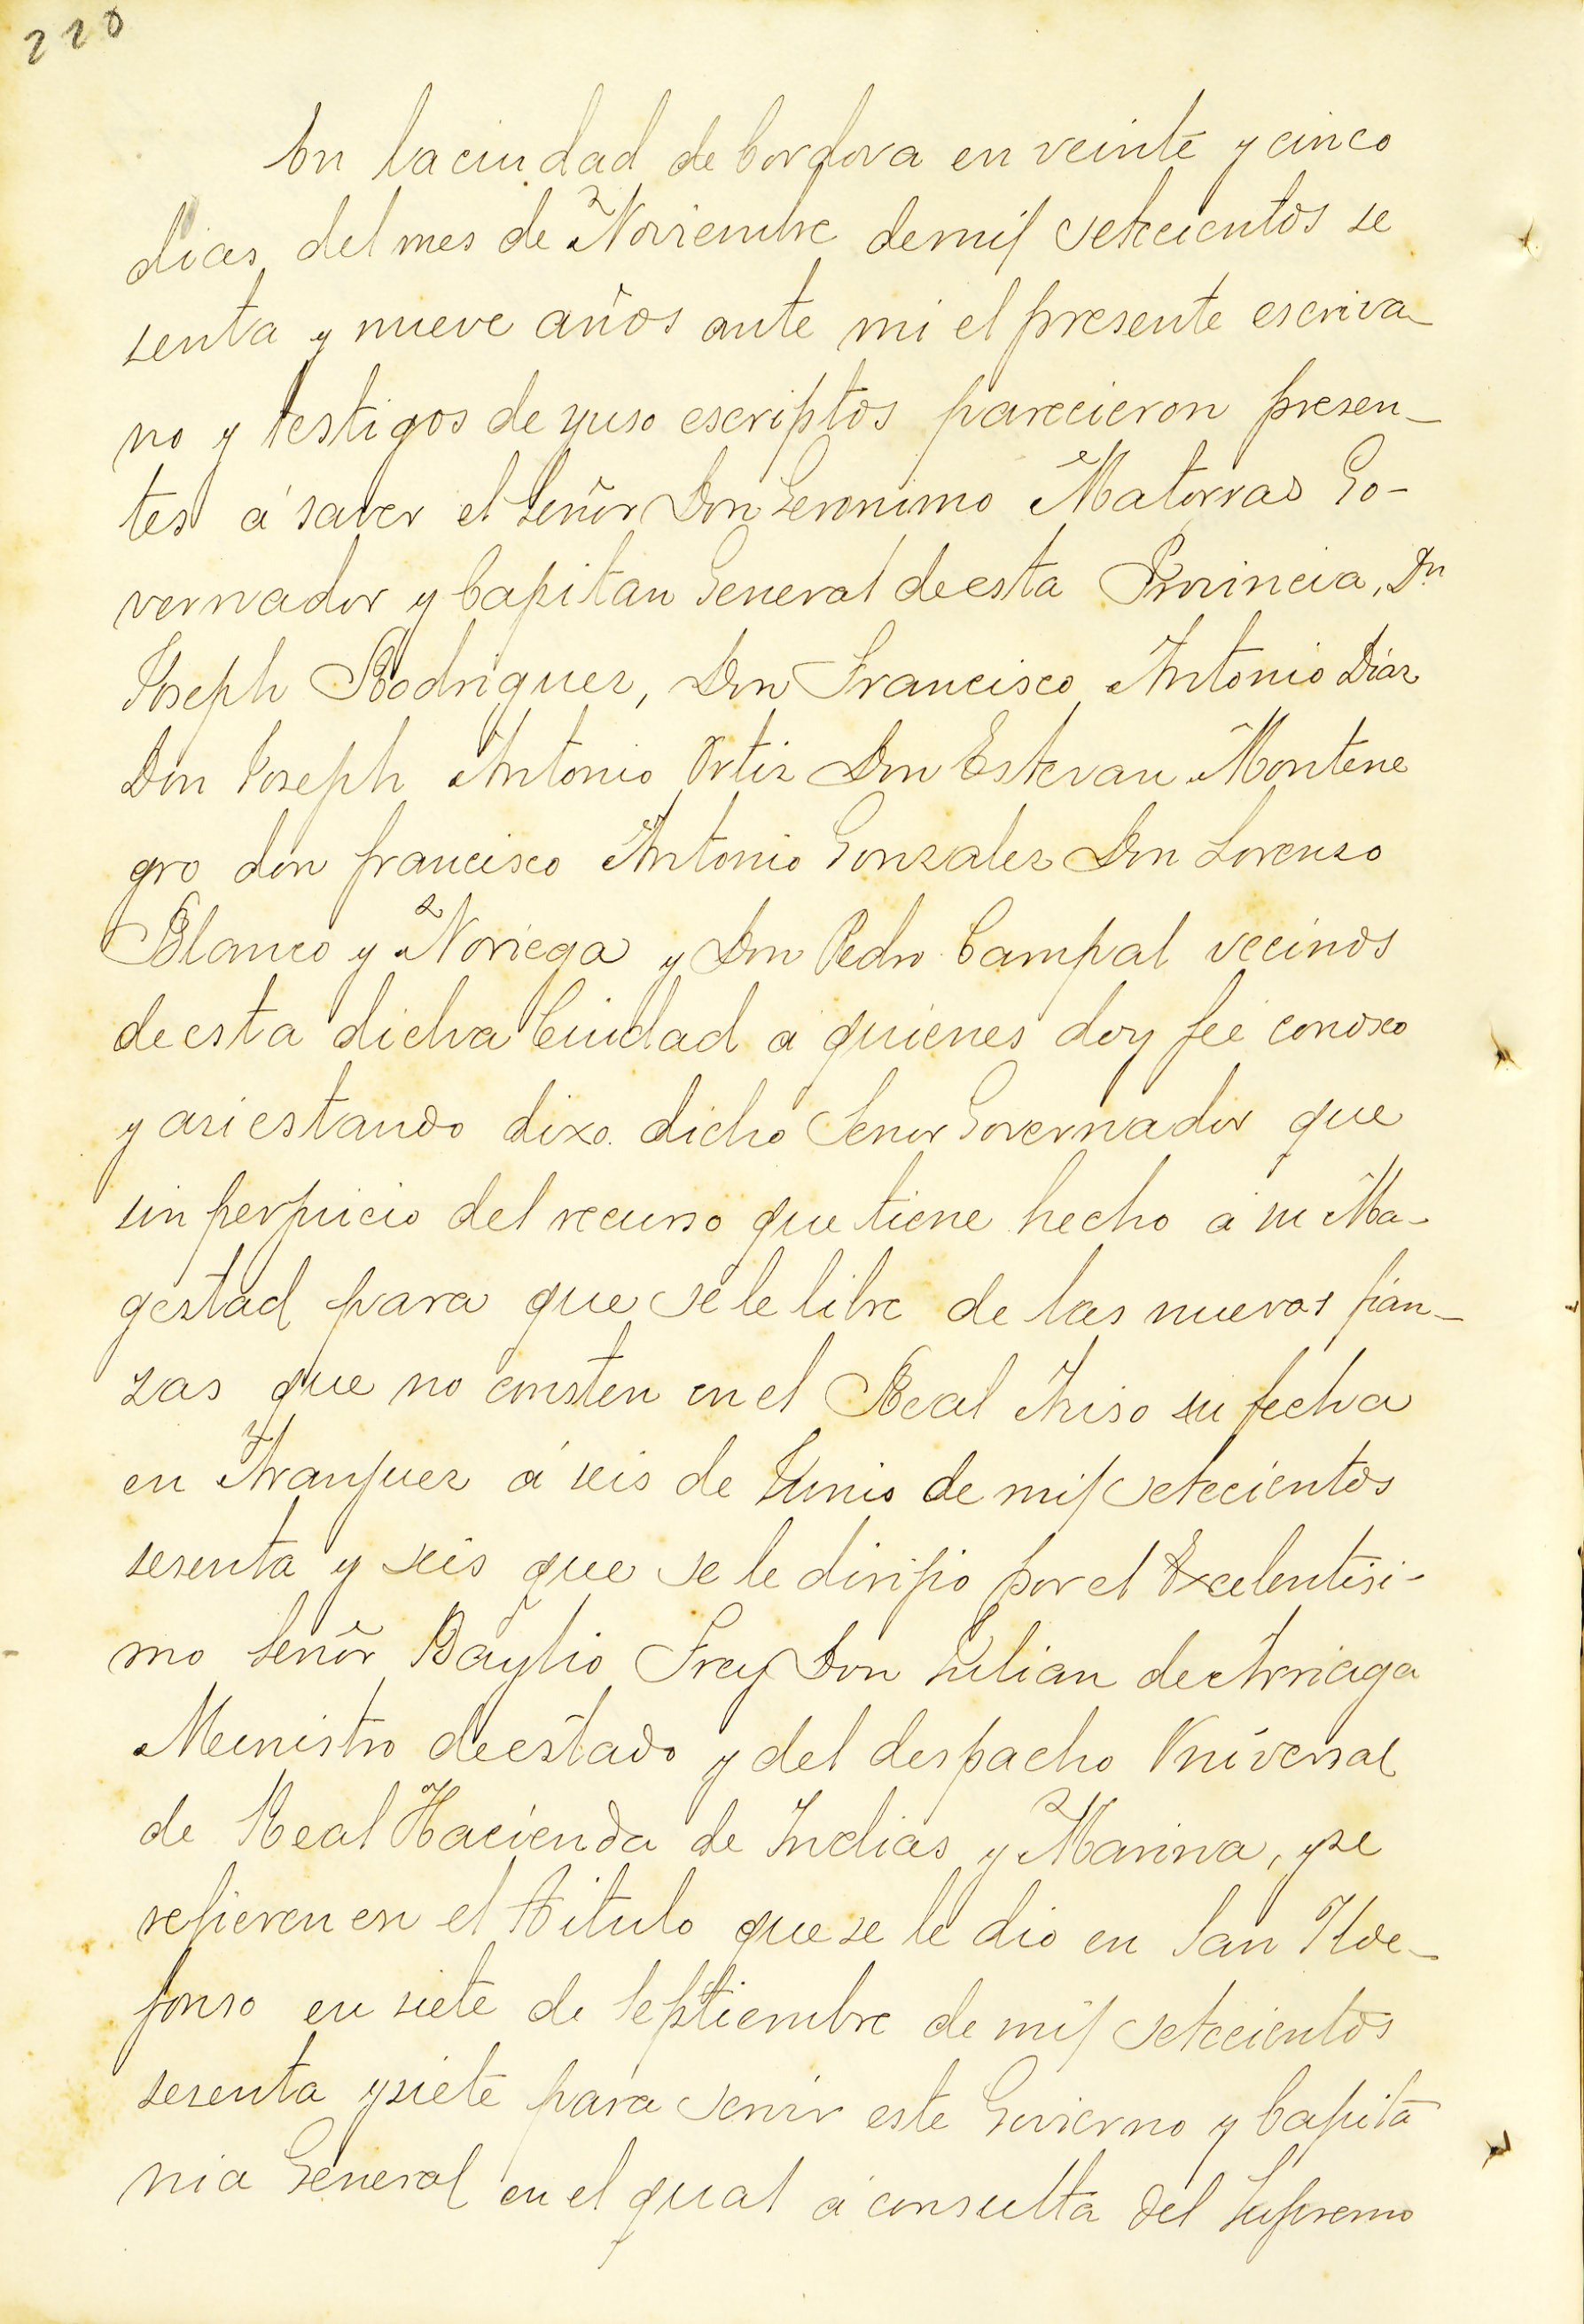 220
En la ciudad de Cordova en veinte y cinco
dias del mes de Noviembre de mil setecientos se
senta y nueve años ante mi el presente escriva
no y testigos de yuso escriptos parecieron presen-
tes á saver el Señor Don Geronimo Matorras Go-
vernador y Capitan General de esta Provincia, Dn
Joseph Rodriguez, Don Francisco Antonio Díaz
Don Joseph Antonio Ortiz Don Estevan Montene
gro don francisco Antonio Gonzalez Don Lorenzo
Blanco y Noriega y Don Pedro Campal vecinos
de esta dicha Ciudad a quienes doy feé conosco
y asi estando dixo dicho Senor Governador que
sin perjuicio del recurso que tiene hecho á su Ma-
gestad para que se le libre de las nuevas fian-
zas que no consten en el Real Aviso su fecha
en Aranjuez á seis de Junio de mil setecientos
sesenta y seis que se le dirijio por el Excelentisi-
mo Señor Baylio Frey Don Julian de Arriaga
Menistro de estado y del despacho Vniversal
de Real Hacienda de Indias y Marina, y se
refieren en el titulo que se le dio en San Ilde-
fonso en siete de Septiembre de mil setecientos
sesenta y siete para servir este Govierno y Capita
nia General en el qual á consulta del Supremo